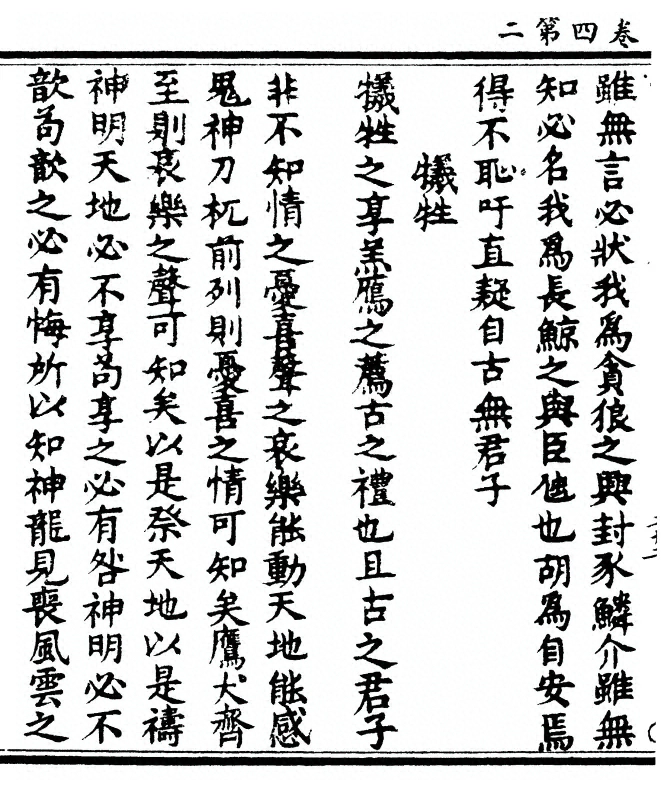 卷四第二
雖無言必狀我爲貪狼之與封豕鱗介雖無
知必名我爲長鯨之與臣虺也胡爲自安焉
得不恥吁直疑自古無君子
犧牲
犧牲之享羔鴈之薦古之禮也且古之君子
非不知情之憂喜聲之哀樂能動天地能感
鬼神刀杌前列則憂喜之情可知矣鷹犬齊
至則哀樂之聲可知矣以是祭天地以是禱
神明天地必不享苟享之必有咎神明必不
歆苟歆之必有悔所以知神龍見喪風雲之